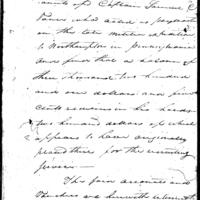 counts of Captain Samuel C
Vance who acted as paymaster
on the late military expedition
to Northampton in Pennsylvania
and find that a balance of
three thousand two hundred
and one dollars and five
cents remains in his hands
two hundred dollars of which
appears to have
for the recruiting
service —
The said accounts and
Vouchers are herewith returned